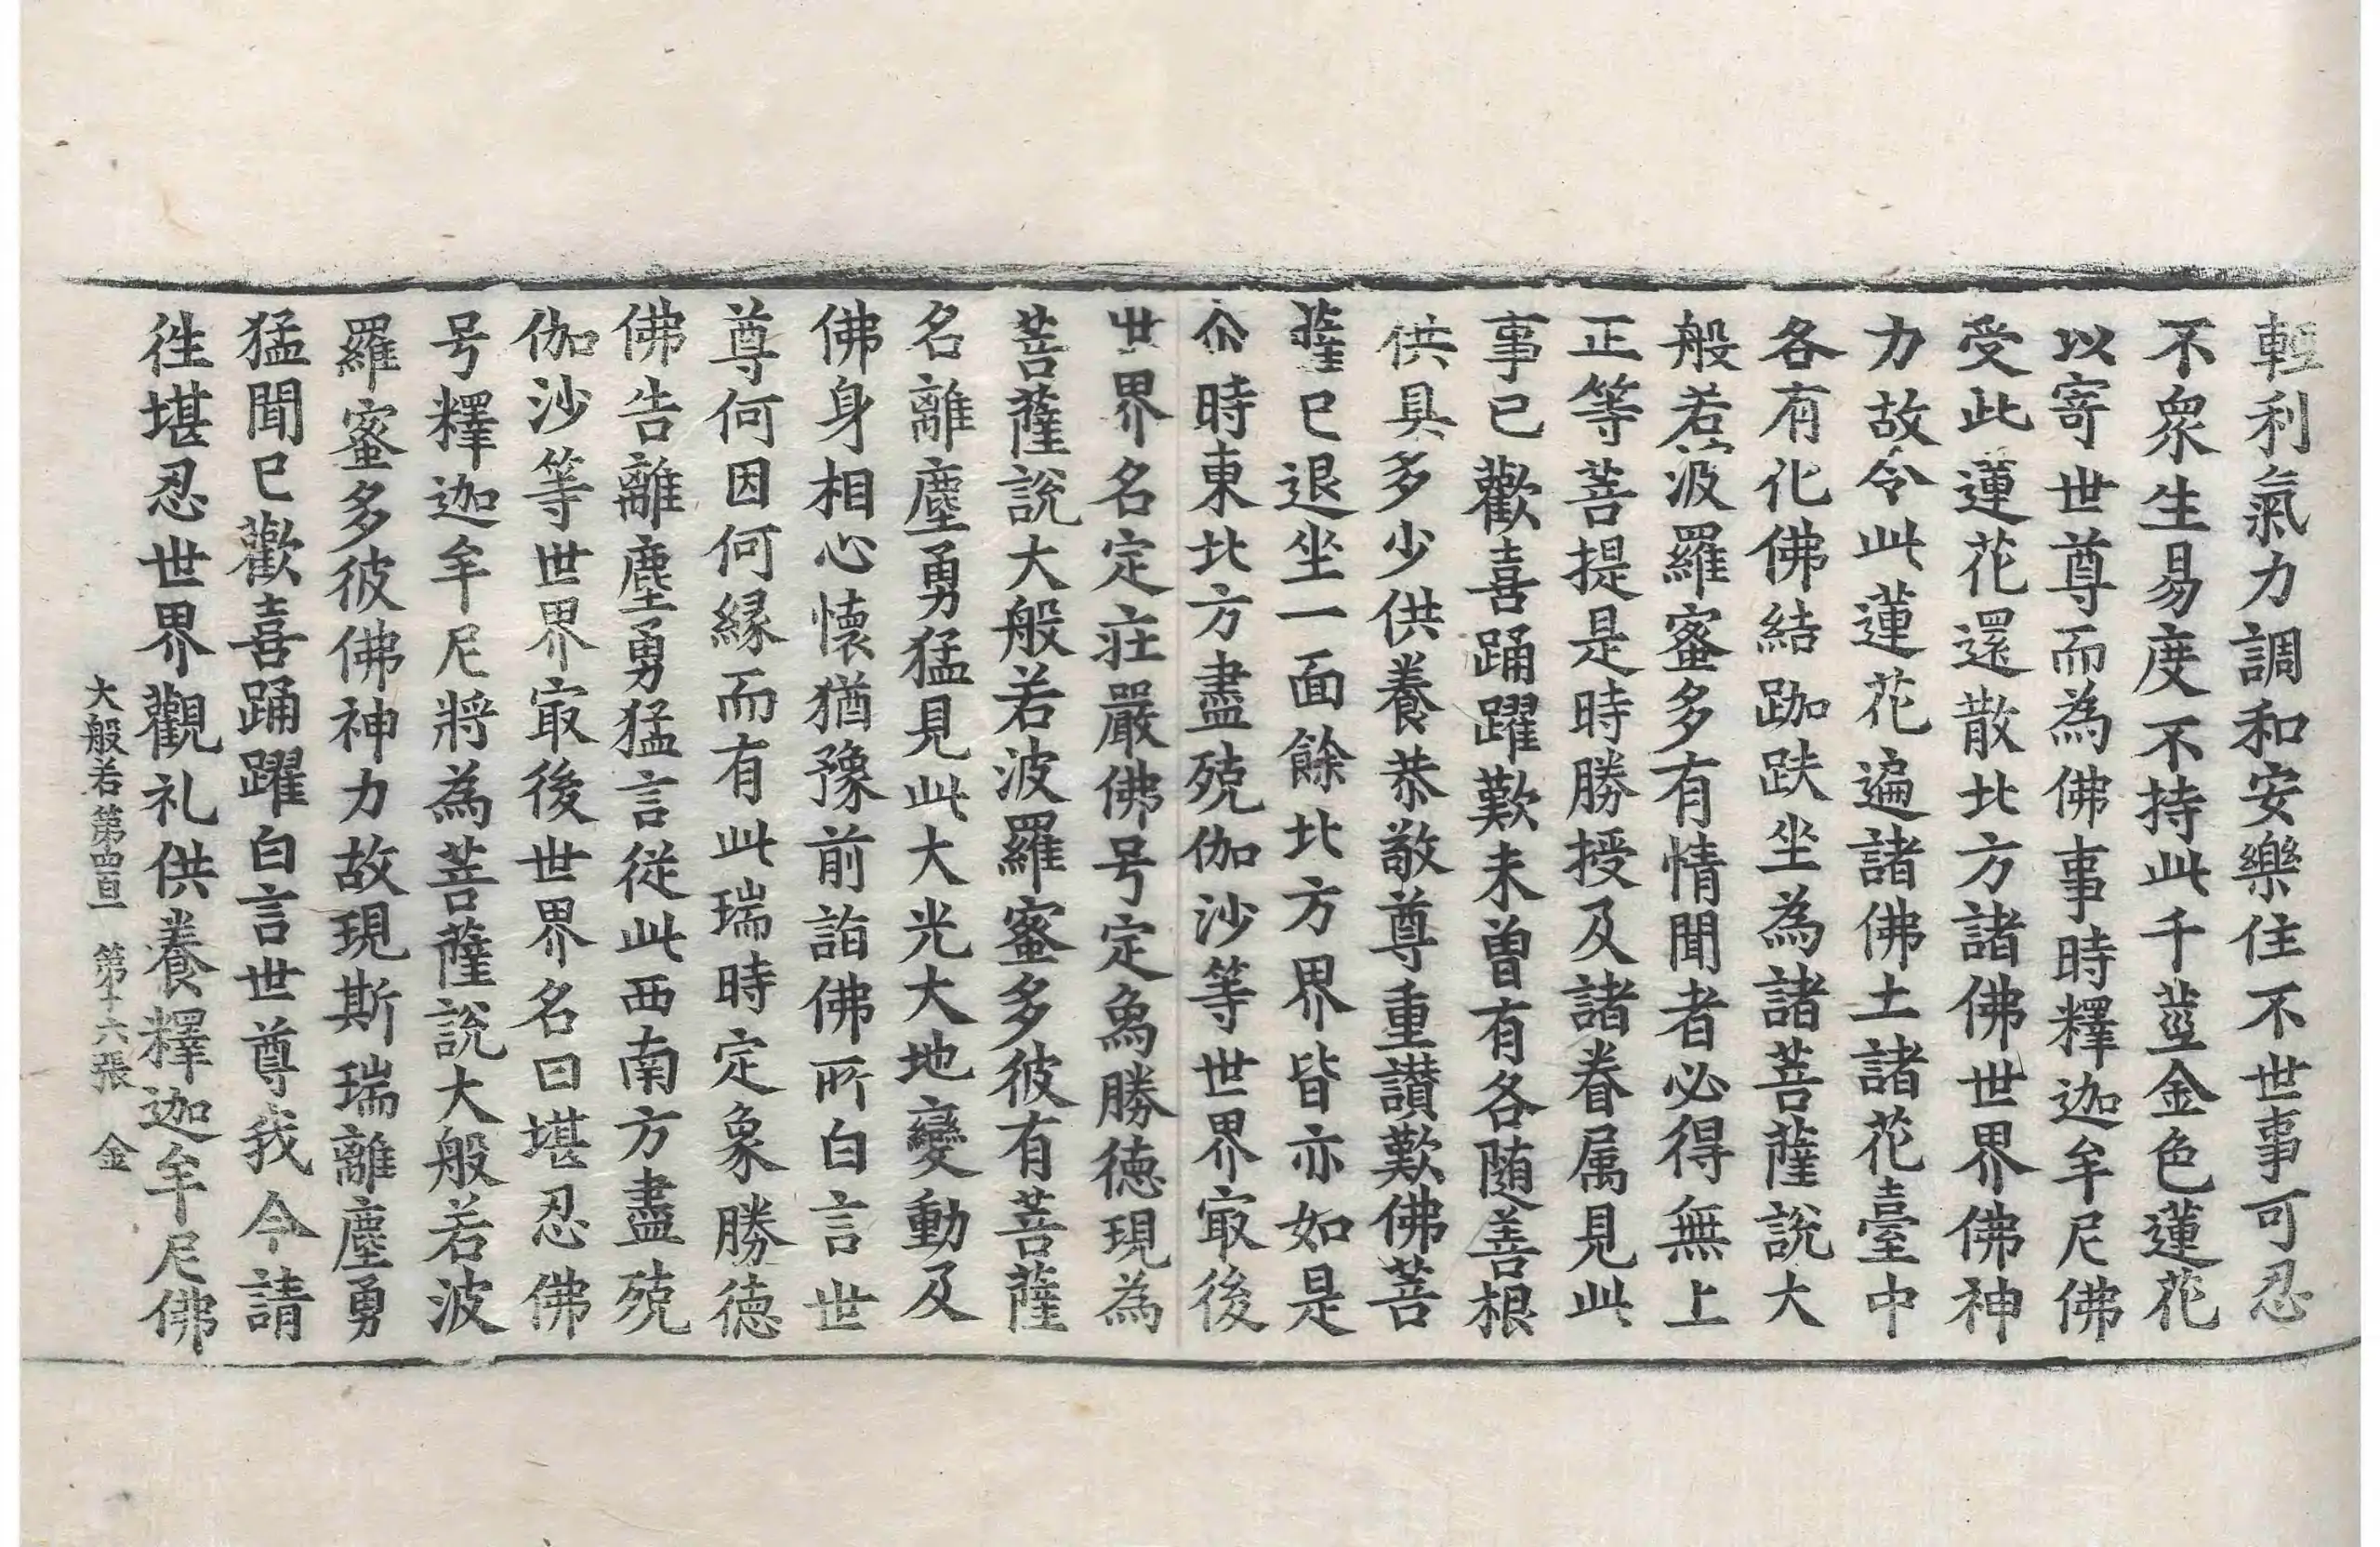 輕利氣力調和安樂住不世事可忍
不衆生易度不持此千莖金色蓮花
以寄世尊而為佛事時釋迦牟尼佛
受此蓮花還散北方諸佛世界佛神
力故令此蓮花遍諸佛土諸花臺中
各有化佛結跏趺坐為諸菩薩說大
般若波羅蜜多有情聞者必得無上
正等菩提是時勝授及諸眷属見此
事已歡喜踊躍歎未曾有各隨善根
供具多少供養恭敬尊重讃歎佛菩
薩已退坐一面餘北方界皆亦如是
尒時東北方盡殑伽沙等世界㝡後
世界名定莊嚴佛号定象勝德現為
菩薩說大般若波羅蜜多彼有菩薩
名離塵勇猛見此大光大地變動及
佛身相心懷猶豫前詣佛所白言世
尊何因何緣而有此瑞時定象勝德
佛告離塵勇猛言從此西南方盡殑
伽沙等世界㝡後世界名曰堪忍佛
号釋迦牟尼將為菩薩說大般若波
羅蜜多彼佛神力故現斯瑞離塵勇
猛聞已歡喜踊躍白言世尊我今請
往堪忍世界觀礼供養釋迦牟尼佛
大般若第四百一 第十六張 金